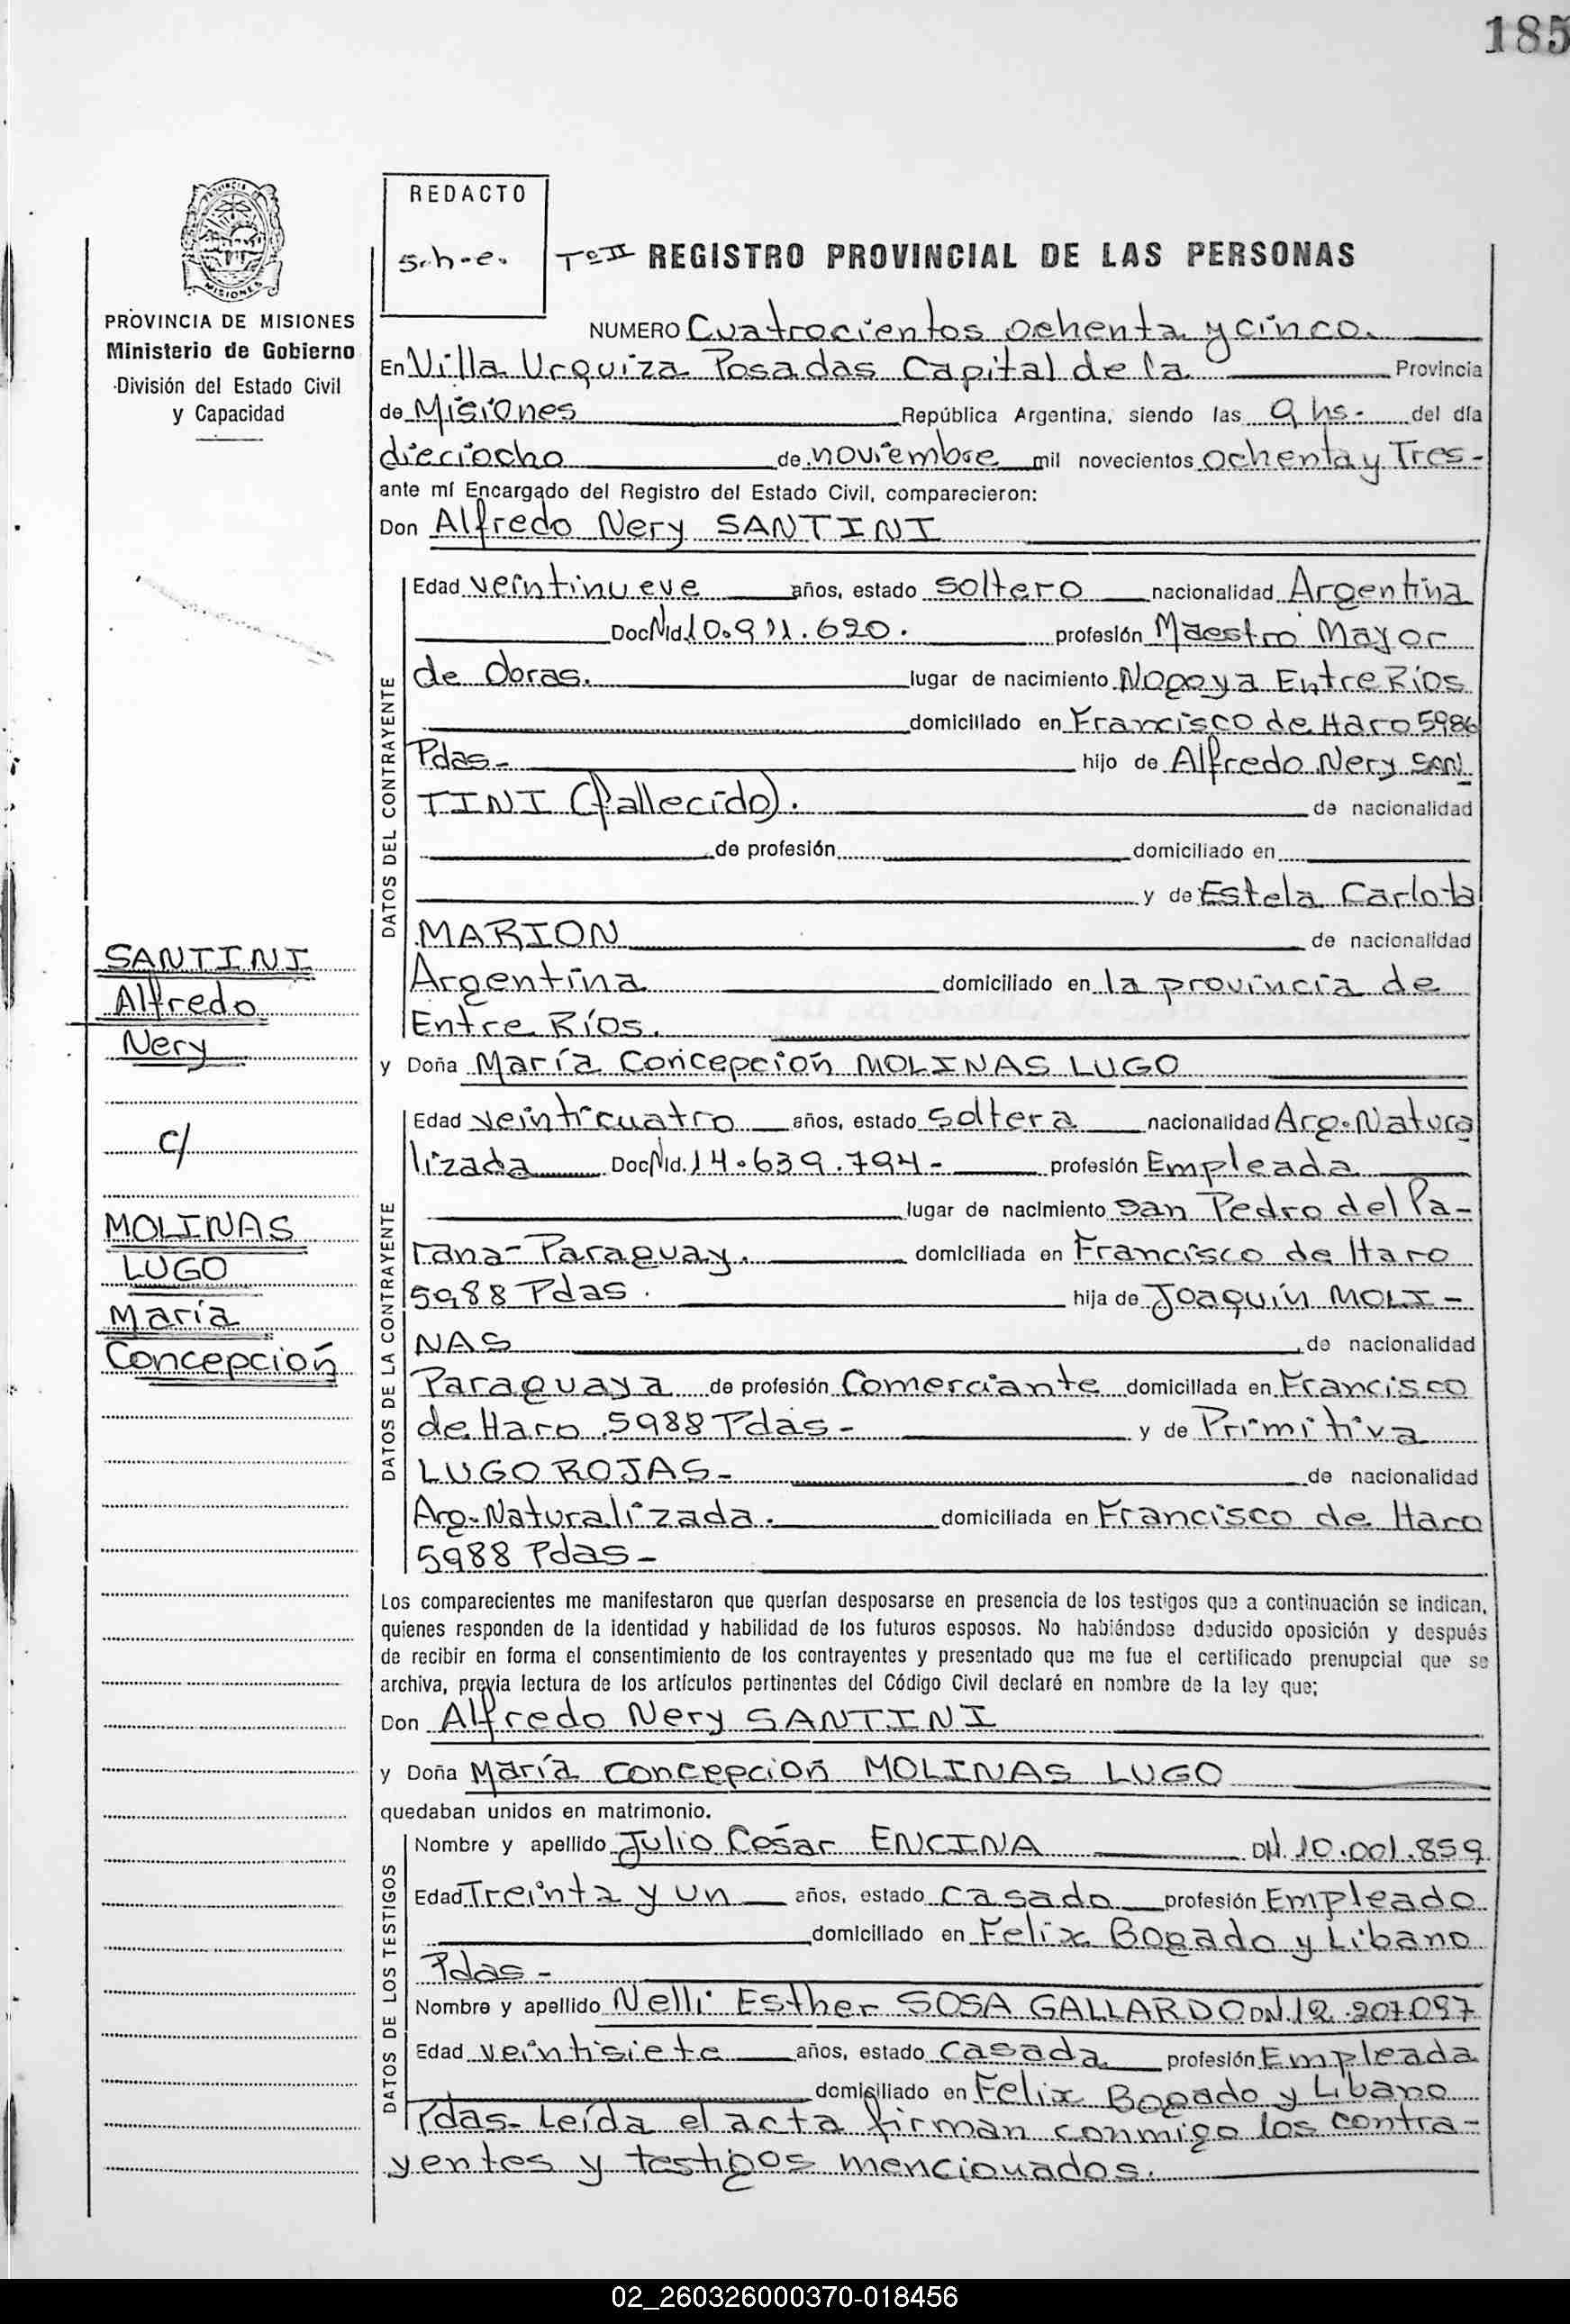 185
REDACTO
S.h.e.
Tº II REGISTRO PROVINCIAL DE LAS PERSONAS
PROVINCIA DE MISIONES
Ministerio de Gobierno
División del Estado Civil
y Capacidad
NUMERO Cuatrocientos ochenta y cinco.
En Villa Urquiza Posadas Capital de la Provincia
de Misiones República Argentina, siendo las 9 hs. del día
dieciocho de noviembre mil novecientos ochenta y Tres-
ante mí Encargado del Registro del Estado Civil, comparecieron:
Don Alfredo Nery SANTINI
DATOS DEL CONTRAYENTE
Edad veintinueve años, estado soltero nacionalidad Argentina
Doc Nid. 10.911.620. profesión Maestro Mayor
de Obras. lugar de nacimiento Nogoya Entre Ríos
domiciliado en Francisco de Haro 5986
Pdas- hijo de Alfredo Nery SAN
TINI (fallecido). de nacionalidad
de profesión domiciliado en
y de Estela Carlota
MARION de nacionalidad
Argentina domiciliado en la provincia de
Entre Ríos.
y Doña María Concepción MOLINAS LUGO
SANTINI
Alfredo
Nery
c/
MOLINAS
LUGO
María
Concepción
DATOS DE LA CONTRAYENTE
Edad veinticuatro años, estado soltera nacionalidad Arg. Natura
lizada Doc Nid. 14.639.794- profesión Empleada
lugar de nacimiento San Pedro del Pa-
rana- Paraguay. domiciliada en Francisco de Haro
5988 Pdas. hija de Joaquín MOLI-
NAS de nacionalidad
Paraguaya de profesión Comerciante domiciliada en Francisco
de Haro 5988 Pdas- y de Primitiva
LUGO ROJAS- de nacionalidad
Arg. Naturalizada. domiciliada en Francisco de Haro
5988 Pdas-
Los comparecientes me manifestaron que querían desposarse en presencia de los testigos que a continuación se indican,
quienes responden de la identidad y habilidad de los futuros esposos. No habiéndose deducido oposición y después
de recibir en forma el consentimiento de los contrayentes y presentado que me fue el certificado prenupcial que se
archiva, previa lectura de los artículos pertinentes del Código Civil declaré en nombre de la ley que;
Don Alfredo Nery SANTINI
y Doña María Concepción MOLINAS LUGO
quedaban unidos en matrimonio.
DATOS DE LOS TESTIGOS
Nombre y apellido Julio Cesar ENCINA DNI. 10.001.859
Edad Treinta y un años, estado casado profesión Empleado
domiciliado en Felix Bogado y Libano
Pdas-
Nombre y apellido Nelli Esther SOSA GALLARDO DNI. 12.207.097
Edad veintisiete años, estado casada profesión Empleada
domiciliado en Felix Bogado y Libano
Pdas- Leída el acta firman conmigo los contra-
yentes y testigos mencionados.
02_260326000370-018456